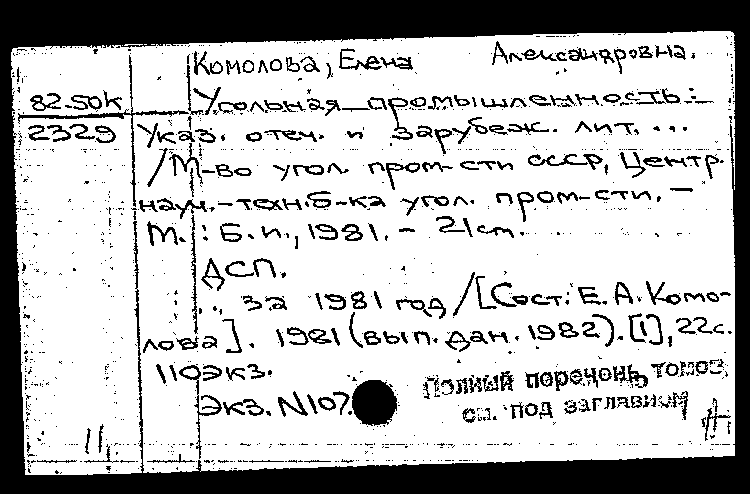 Комолова, Елена Александровна.
82-50к Угольная промышленность:
2329 Указ. отеч. и зарубеж. лит. ...
/М-во угол. пром-сти СССР, Центр.
науч.-техн.б-ка угол. пром-сти. –
М.: Б.и., 1981. – 21см.
ДСП.
... за 1981 год /[Сост. Е.А. Комо-
лова]. 1981 (вып. дан. 1982). [1], 22с.
110экз.
Экз. N107.
Полный перечень томов
см. под заглавием
11